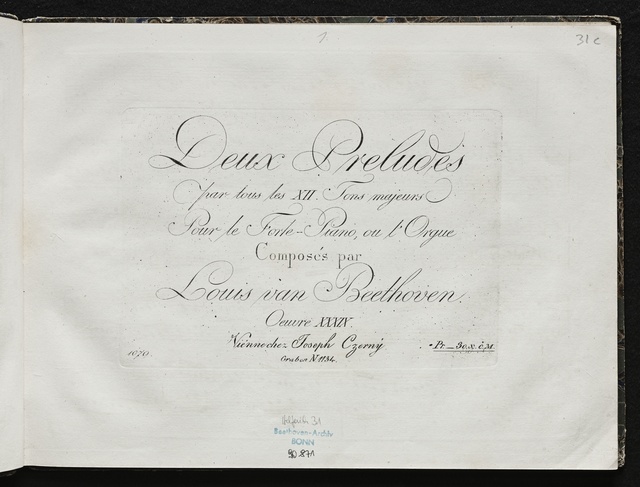 1
31c
Deux Preludes
par tous les XII. Tons majeurs
Pour le Forte-Piano, ou l'Orgue
Composés par
Louis van Beethoven.
Oeuvre XXXIX.
Vienne chez Joseph Czerný
Graben N 1134.
1070.
Pr. 30.x. C.M.
31
Beethoven-Archiv
BONN